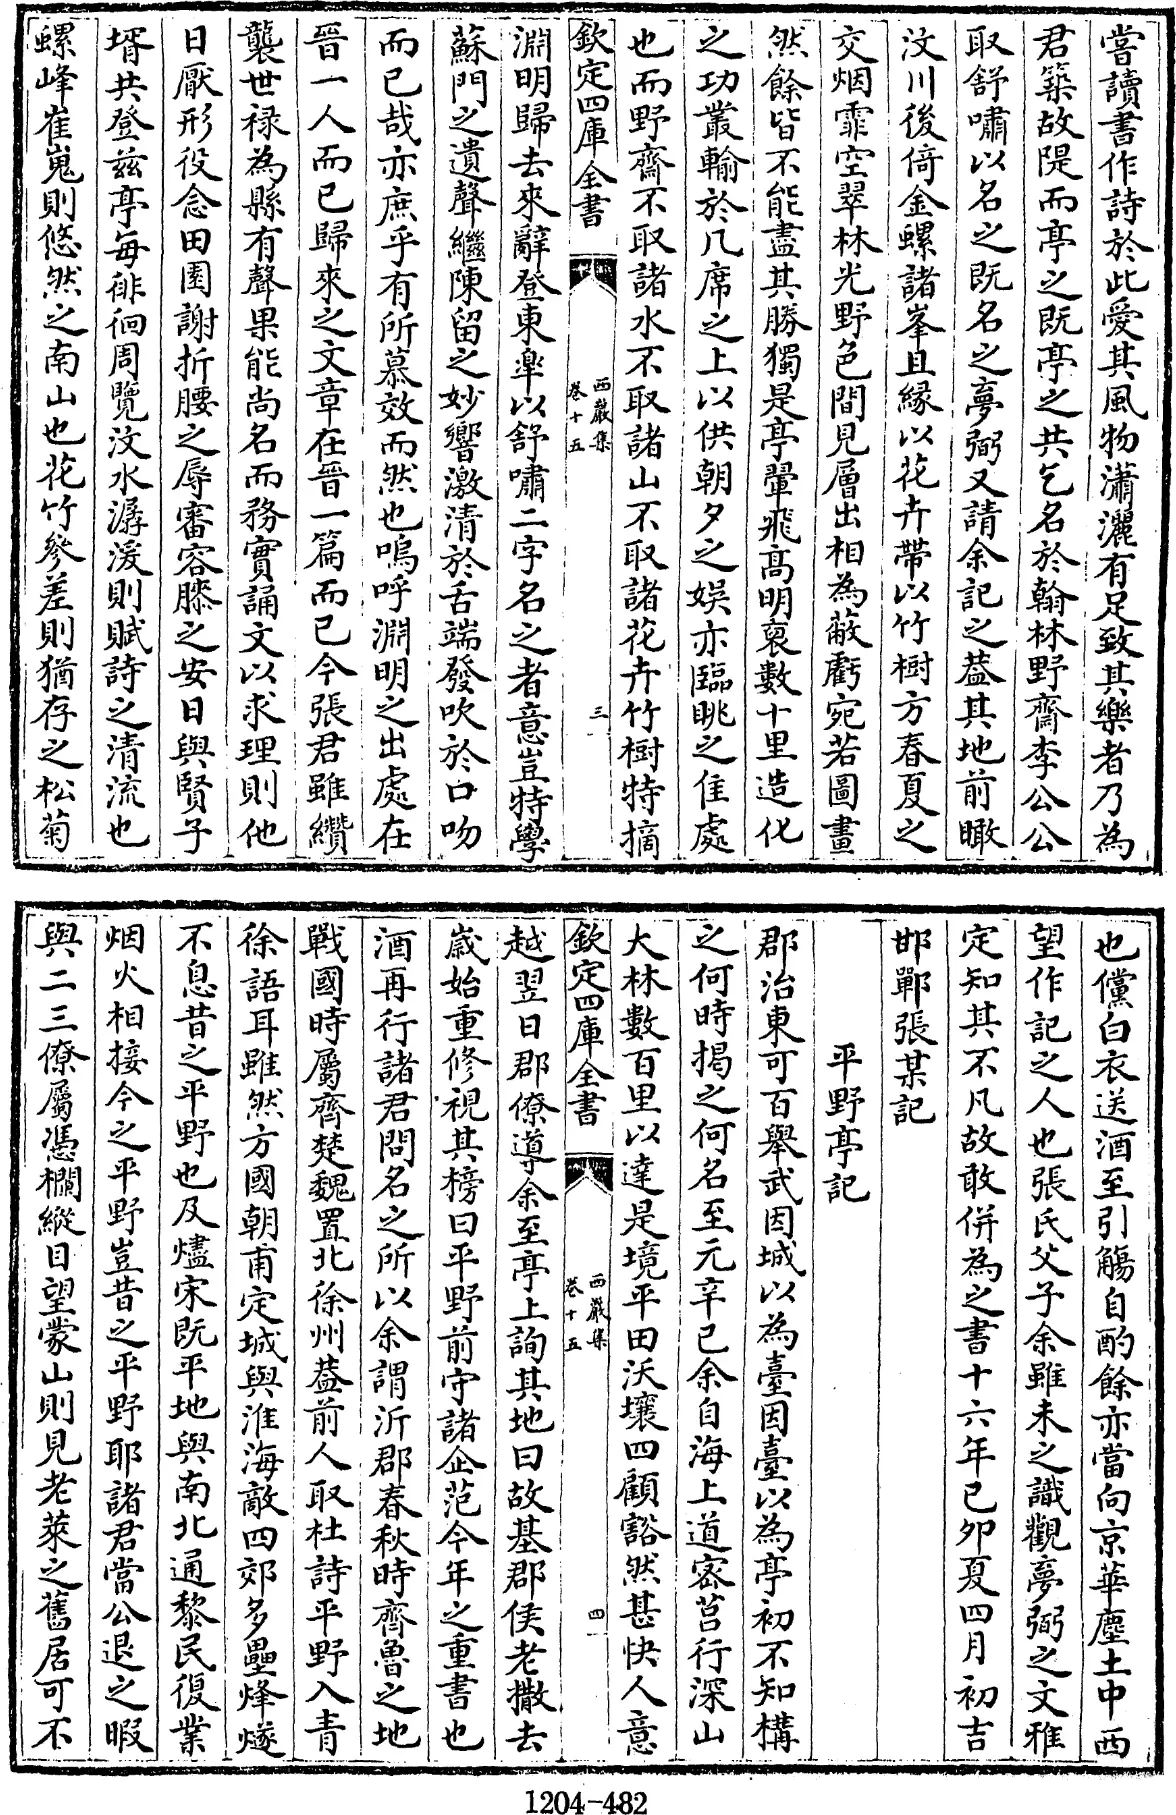 嘗讀書作詩於此愛其風物瀟灑有足致其樂者乃為
君築故隄而亭之既亭之共乞名於翰林野齋李公公
取舒嘯以名之既名之夢弼又請余記之葢其地前瞰
汶川後倚金螺諸峯且縁以花卉帶以竹樹方春夏之
交烟霏空翠林光野色間見層出相為蔽虧宛若圖畫
然餘皆不能盡其勝獨是亭翬飛髙明裒數十里造化
之功叢輸於几席之上以供朝夕之娱亦臨眺之佳處
也而野齋不取諸水不取諸山不取諸花卉竹樹特摘
欽定四庫全書
西巖集
卷十五
三
淵明歸去來辭登東臯以舒嘯二字名之者意豈特學
蘇門之遺聲繼陳留之妙響激清於舌端發吹於口吻
而已哉亦庶乎有所慕效而然也嗚呼淵明之出處在
晉一人而已歸來之文章在晉一篇而已今張君雖纘
襲世禄為縣有聲果能尚名而務實誦文以求理則他
日厭形役念田園謝折腰之辱審容膝之安日與賢子
壻共登兹亭每徘徊周覽汶水潺湲則賦詩之清流也
螺峰崔嵬則悠然之南山也花竹參差則猶存之松菊
也儻白衣送酒至引觴自酌餘亦當向京華塵土中西
望作記之人也張氏父子余雖未之識觀夢弼之文雅
定知其不凡故敢併為之書十六年已夘夏四月初吉
邯鄲張某記
平野亭記
郡治東可百舉武因城以為臺因臺以為亭初不知構
之何時掲之何名至元辛已余自海上道宻莒行深山
大林數百里以達是境平田沃壤四顧豁然甚快人意
欽定四庫全書
西巖集
卷十五
四
越翌日郡僚導余至亭上詢其地曰故基郡侯老撒去
歳始重修視其榜曰平野前守諸企范今年之重書也
酒再行諸君問名之所以余謂沂郡春秋時齊魯之地
戰國時屬齊楚魏置北徐州葢前人取杜詩平野入青
徐語耳雖然方國朝甫定城與淮海敵四郊多壘烽燧
不息昔之平野也及燼宋既平地與南北通黎民復業
烟火相接今之平野豈昔之平野耶諸君當公退之暇
與二三僚屬憑欄縱目望蒙山則見老萊之舊居可不
1204-482